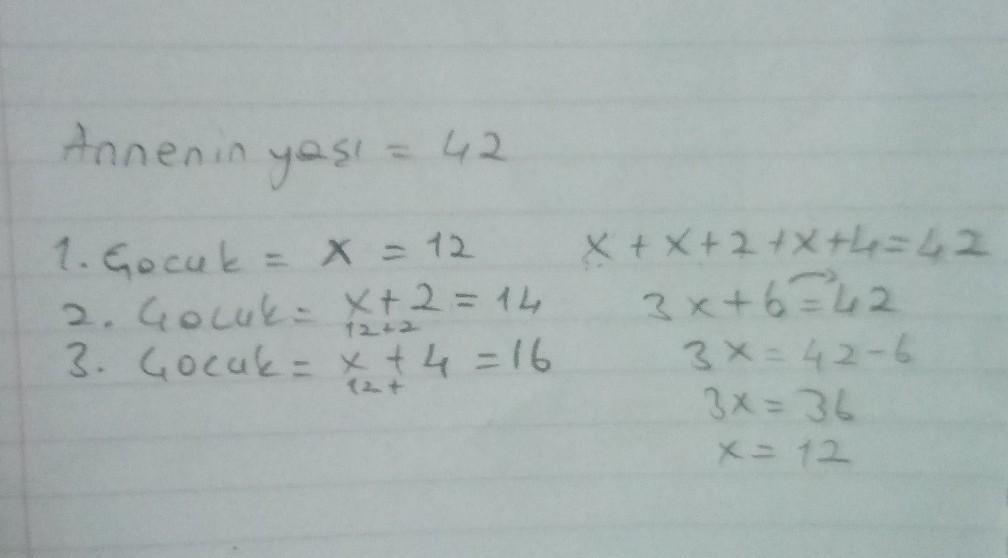 Annenin yaşı = 42
1. Çocuk = x = 12
2. Çocuk = x + 2 = 14
12+2
3. Çocuk = x + 4 = 16
12+
x + x + 2 + x + 4 = 42
3x + 6 = 42
3x = 42 - 6
3x = 36
x = 12